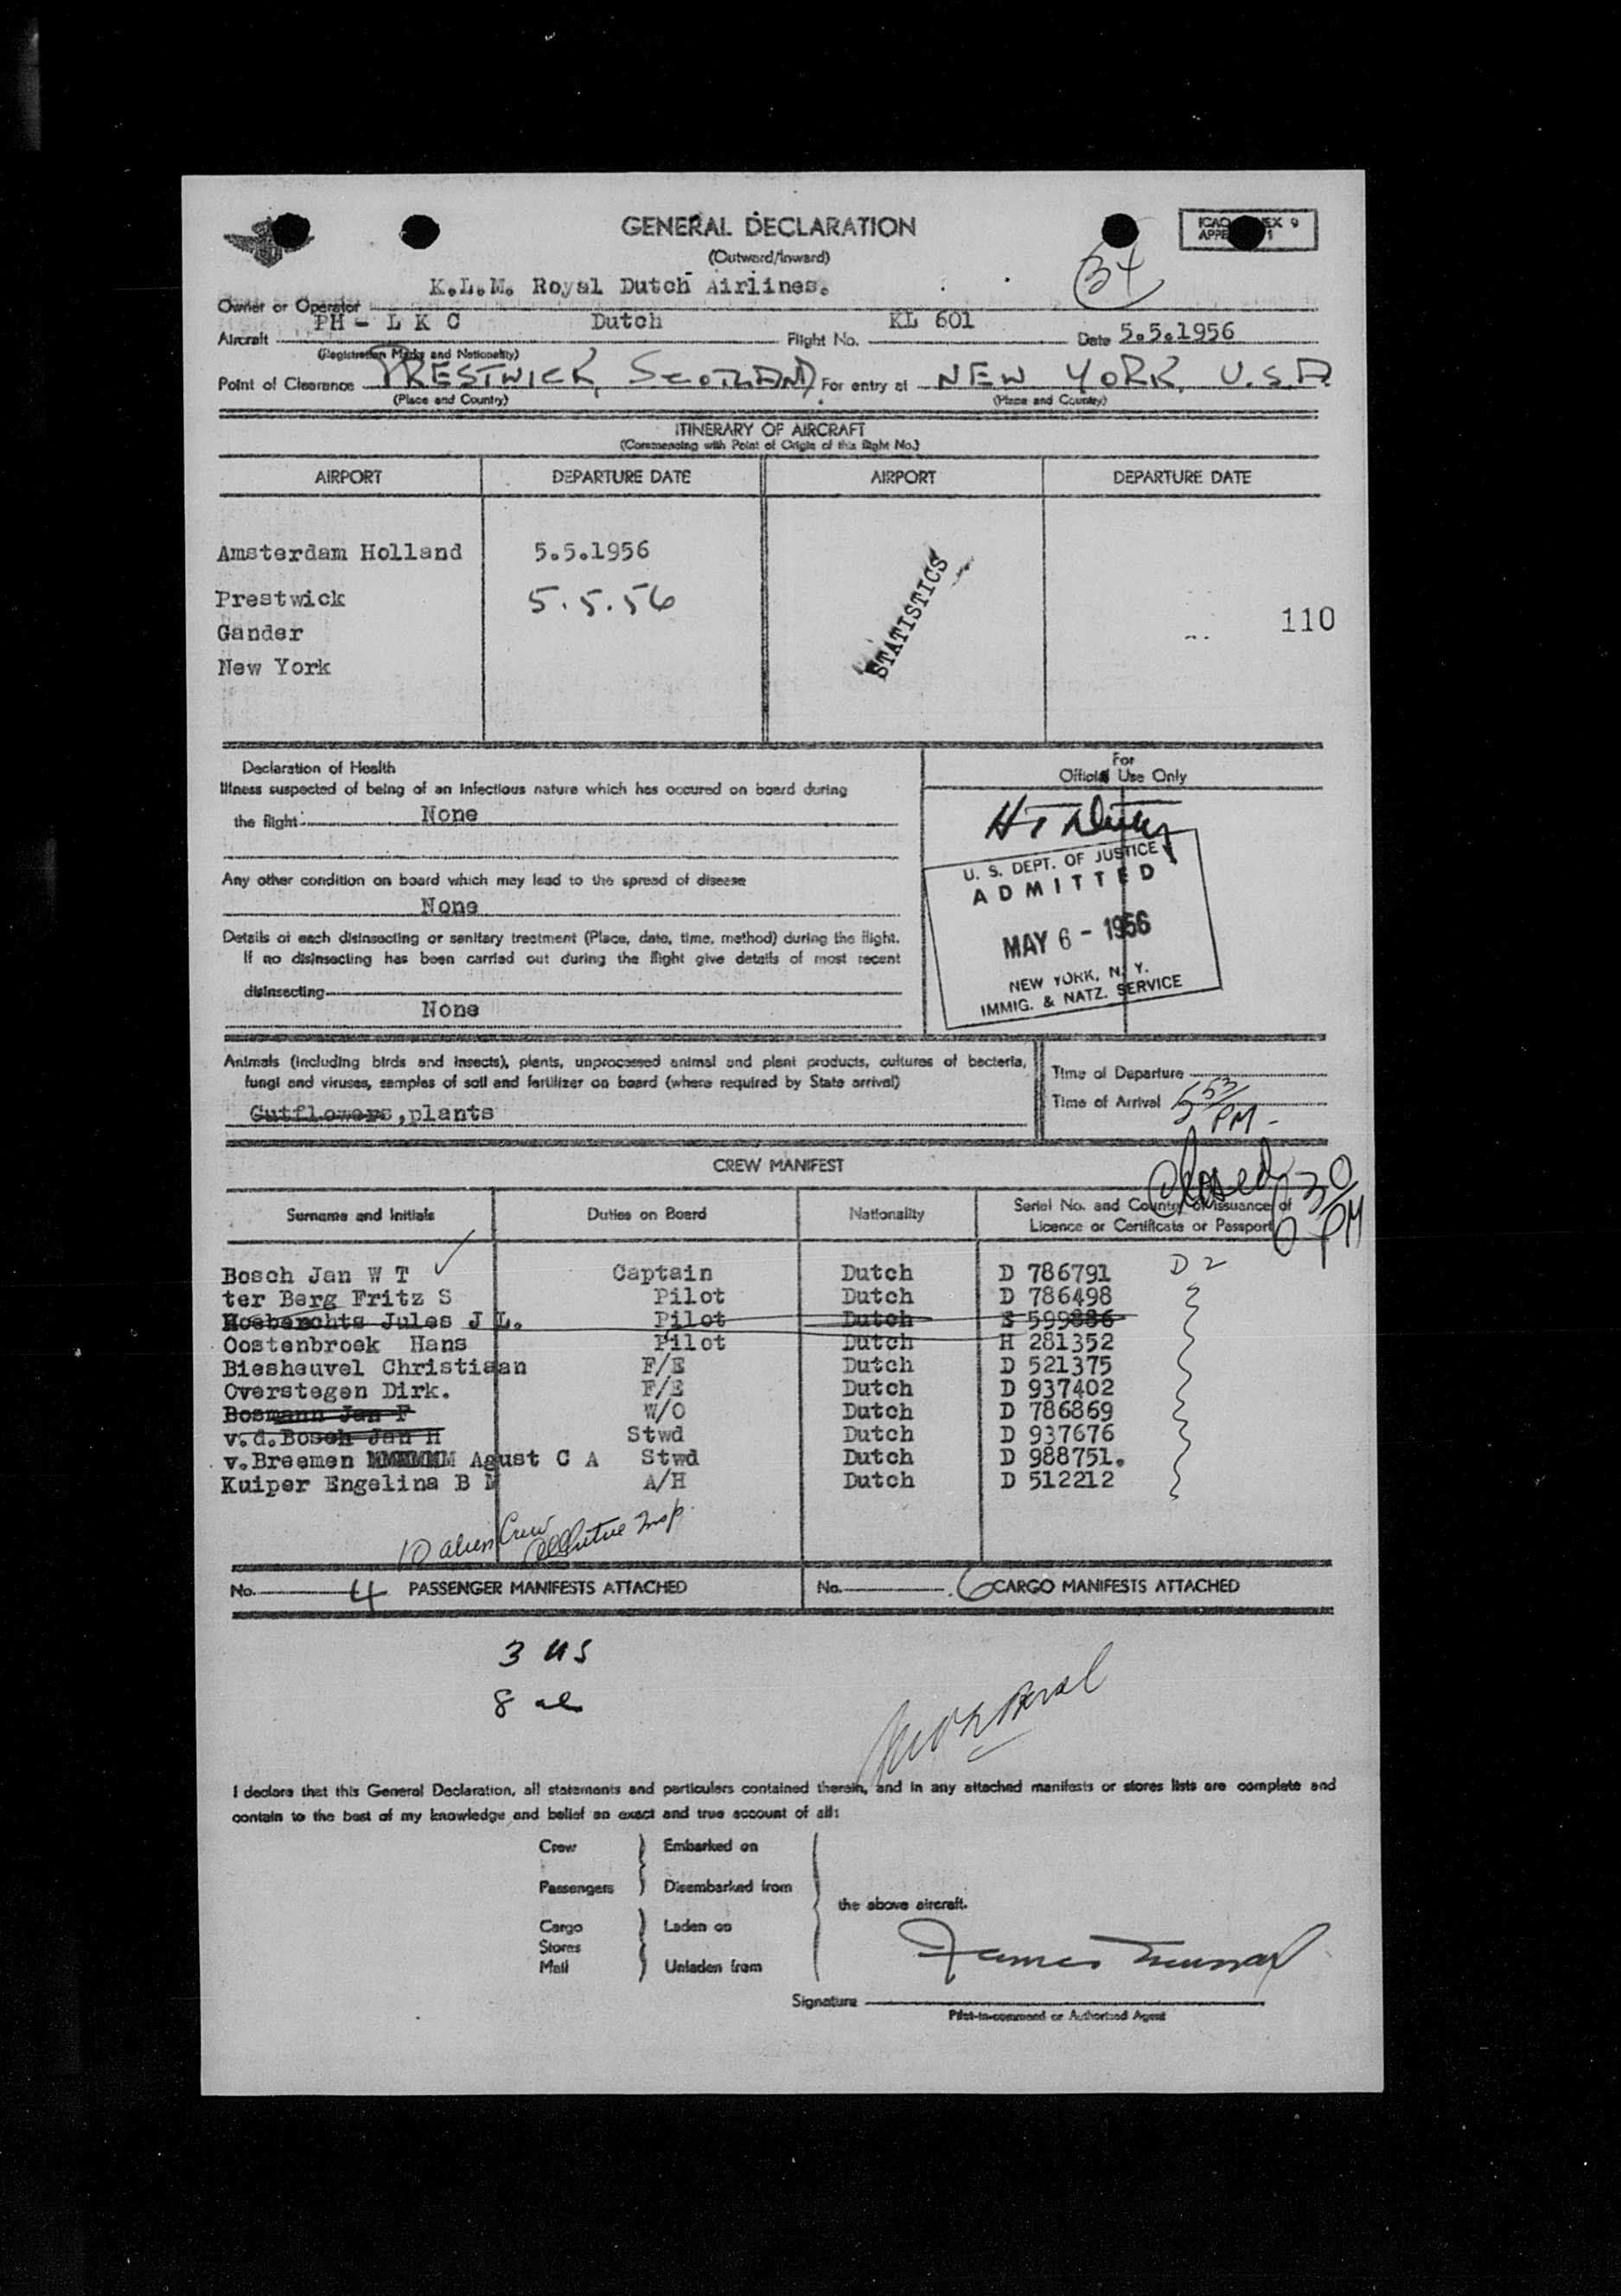 GENERAL DECLARATION
(Outward/Inward)
34
K.L.M. Royal Dutch Airlines.
Owner or Operator
PH - L K C Dutch KL 601 5.5.1956
Aircraft Flight No. Date
(Registration Marks and Nationality)
Point of Clearance PRESTWICK, SCOTLAND. For entry at NEW YORK, U.S.A.
(Place and Country) (Place and Country)
ITINERARY OF AIRCRAFT
(Commencing with Point of Origin of this flight No.)
AIRPORT DEPARTURE DATE AIRPORT DEPARTURE DATE
Amsterdam Holland 5.5.1956
Prestwick 5.5.56
Gander
New York
STATISTICS
110
Declaration of Health
Illness suspected of being of an infectious nature which has occured on board during
the flight: None
Any other condition on board which may lead to the spread of disease
None
Details of each disinsecting or sanitary treatment (Place, date, time, method) during the flight.
If no disinsecting has been carried out during the flight give details of most recent
disinsecting
None
For
Official Use Only
U. S. DEPT. OF JUSTICE
ADMITTED
MAY 6 - 1956
NEW YORK, N. Y.
IMMIG. & NATZ. SERVICE
Animals (including birds and insects), plants, unprocessed animal and plant products, cultures of bacteria,
fungi and viruses, samples of soil and fertilizer on board (where required by State arrival)
Cutflowers,plants
Time of Departure
Time of Arrival 5 53 PM -
Closed 6 30 PM
CREW MANIFEST
Surname and Initials Duties on Board Nationality Serial No. and Country of issuance of
Licence or Certificate or Passport
Bosch Jan W T Captain Dutch D 786791 D 2
ter Berg Fritz S Pilot Dutch D 786498
Hoebenchts Jules J L. Pilot Dutch S 599886
Oostenbroek Hans Pilot Dutch H 281352
Biesheuvel Christiaan F/E Dutch D 521375
Overstegen Dirk. F/E Dutch D 937402
Bosmann Jan F W/O Dutch D 786869
v.d.Bosch Jan H Stwd Dutch D 937676
v.Breemen Agust C A Stwd Dutch D 988751.
Kuiper Engelina B M A/H Dutch D 512212
10 alien Crew
Insp.
No. 4 PASSENGER MANIFESTS ATTACHED No. 6 CARGO MANIFESTS ATTACHED
3 US
8 al
I declare that this General Declaration, all statements and particulars contained therein, and in any attached manifests or stores lists are complete and
contain to the best of my knowledge and belief an exact and true account of all:
Crew Embarked on
Passengers Disembarked from
the above aircraft.
Cargo Laden on
Stores
Mail Unladen from
James
Signature
Pilot-in-command or Authorized Agent